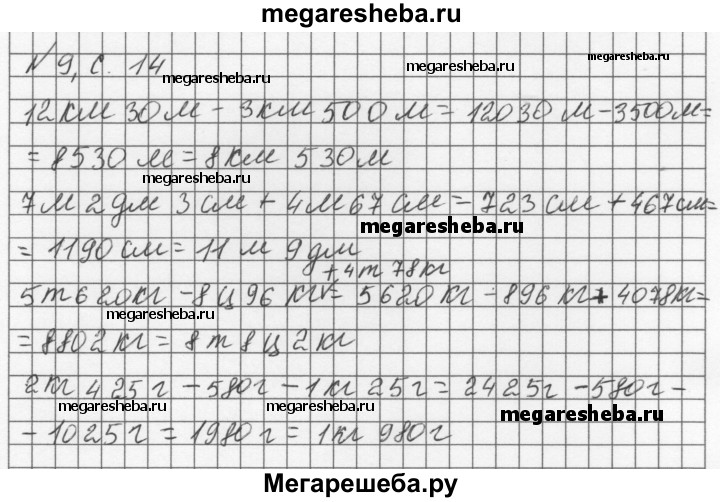 megaresheba.ru
№ 9, с. 14
megaresheba.ru megaresheba.ru
megaresheba.ru
12 км 30 м - 3 км 500 м = 12030 м - 3500 м =
= 8530 м = 8 км 530 м
megaresheba.ru
7 м 2 дм 3 см + 4 м 67 см = 723 см + 467 см =
megaresheba.ru
= 1190 см = 11 м 9 дм
+ 4 т 78 кг
5 т 620 кг - 8 ц 96 кг = 5620 кг - 896 кг + 4078 кг =
megaresheba.ru
= 8802 кг = 8 т 8 ц 2 кг
2 кг 425 г - 580 г - 1 кг 25 г = 2425 г - 580 г -
megaresheba.ru megaresheba.ru megaresheba.ru
- 1025 г = 1980 г = 1 кг 980 г
Мегарешеба.ру